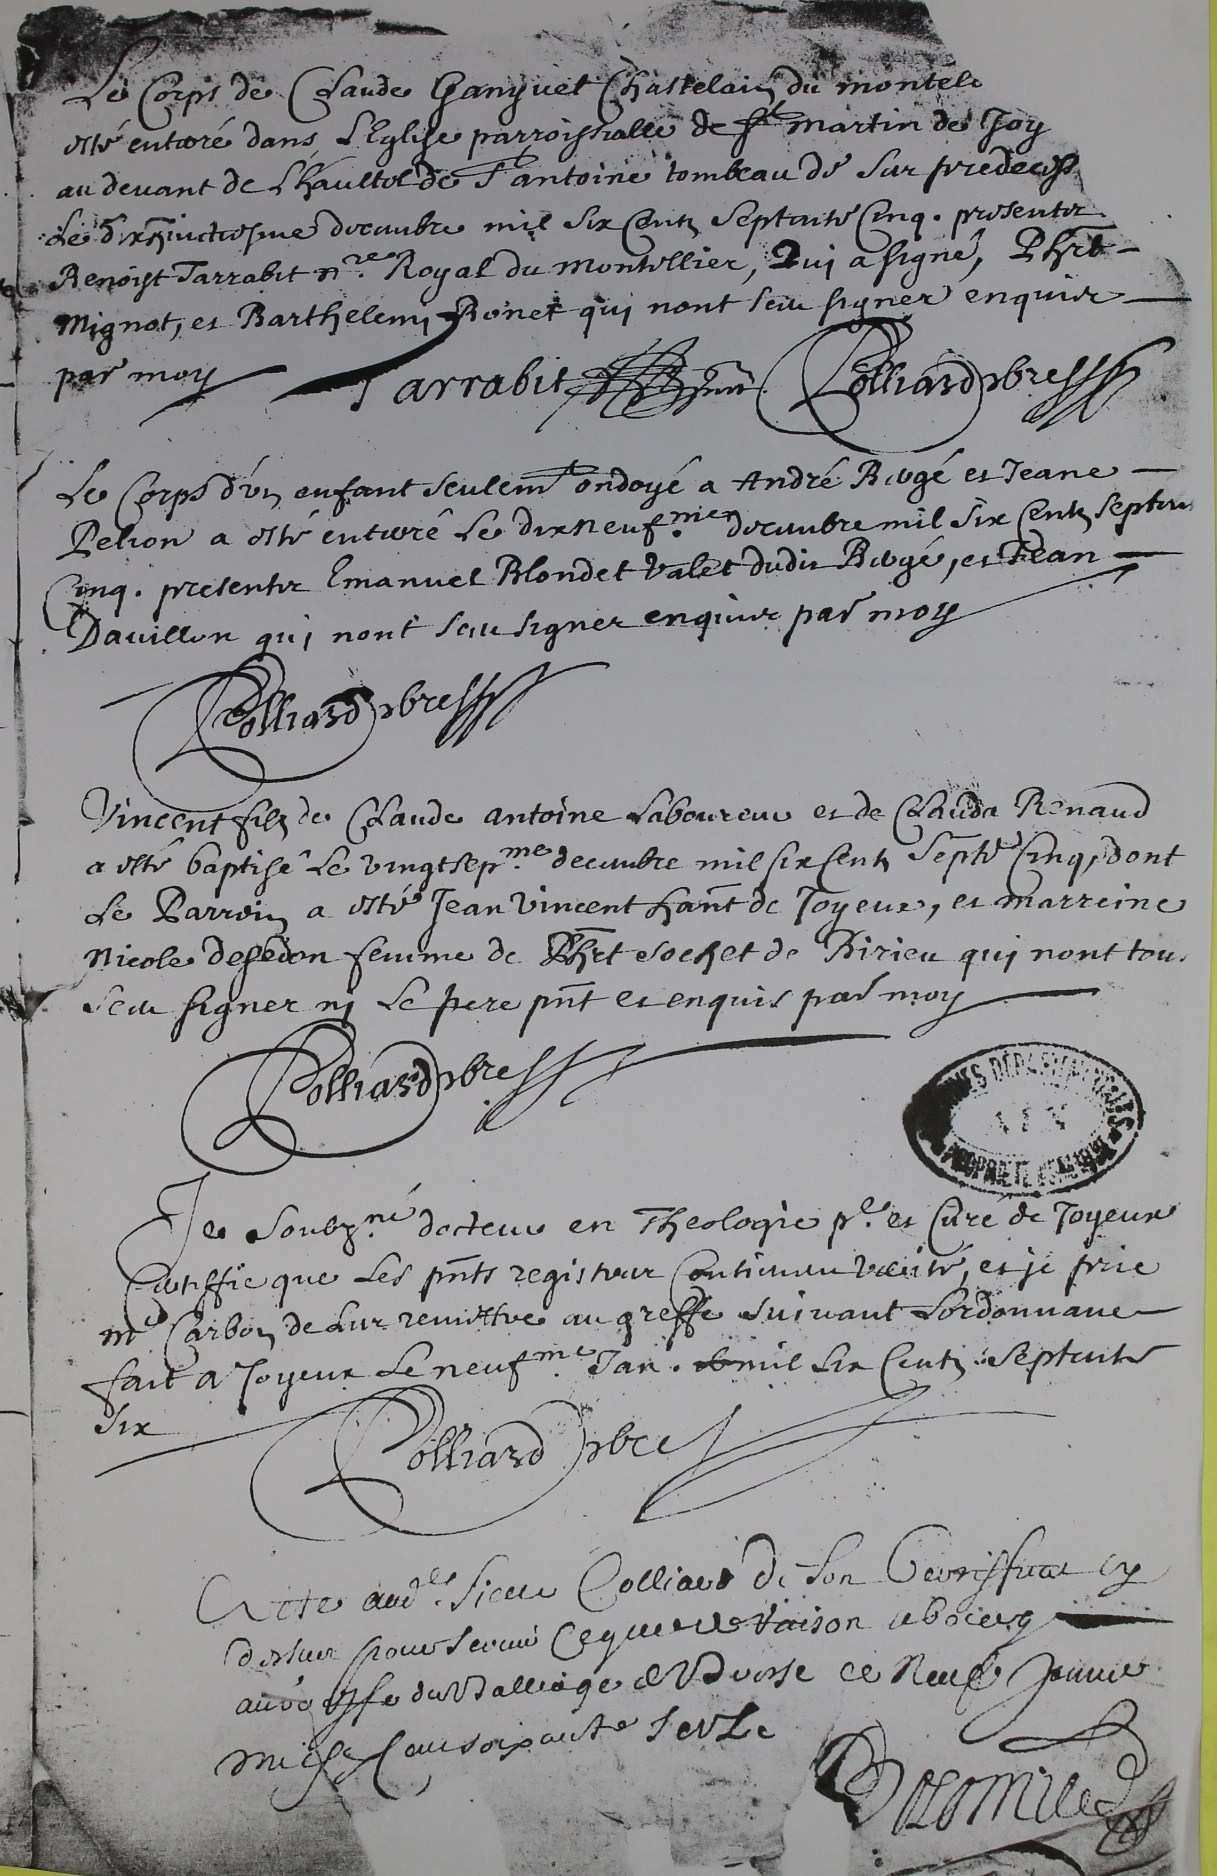 Le Corps de Claude Ganyuet Chastelain du montel
esté enterré dans L'Eglise parroissialle de st martin de Joy
au devant de L'haultel de St antoine tombeau de ser predeces
Le dixhuictiesme decembre mil six Cents septante Cinq. presents
Benoist Tarrabit nre Royal du montellier, Qui a signé, Phbt
Mignot, et Barthelemy Bonet qui nont sceu signer enquis
par moy Tarrabit Colliard pbre
Le Corps d'un enfant seulemt ondoyé a André Brogé et Jeane
Pelion a esté enterré Le dixneufme decembre mil six Cents septante
Cinq. presents Emanuel Blondet valet dudit Brogé, et Jean
Davillon qui nont sceu signer enquis par moy
Colliard pbre
Vincent fils de Claude antoine Laboureur et de Clauda Renaud
a esté baptisé Le vingtsepme decembre mil six Cents septte Cinq, dont
Le Parrain a esté Jean Vincent hant de Joyeux, et marreine
Nicole femme de Phbt sochet de Birieu qui nont tous
sceu signer nj Le pere pnt et enquis par moy
Colliard pbre
ARCHIVES DÉPARTEMENTALES
AIN
PROPRIÉTÉ PUBLIQUE
Je Soubzné docteur en Theologie pre et Curé de Joyeux
Certiffie que Les pnts registres Contiennent verité, et je prie
mr Carbon de Les remettre au greffe suivant Lordonnance
fait a Joyeux Le neufme Jan. mil six Cents septante
six
Colliard pbre
Acte aud. sieur Colliard de son cy
dessus pour servir Ce que de raison
au greffe du Balliage de Bresse ce Neuf Janvier
mil six Cent soixante seize